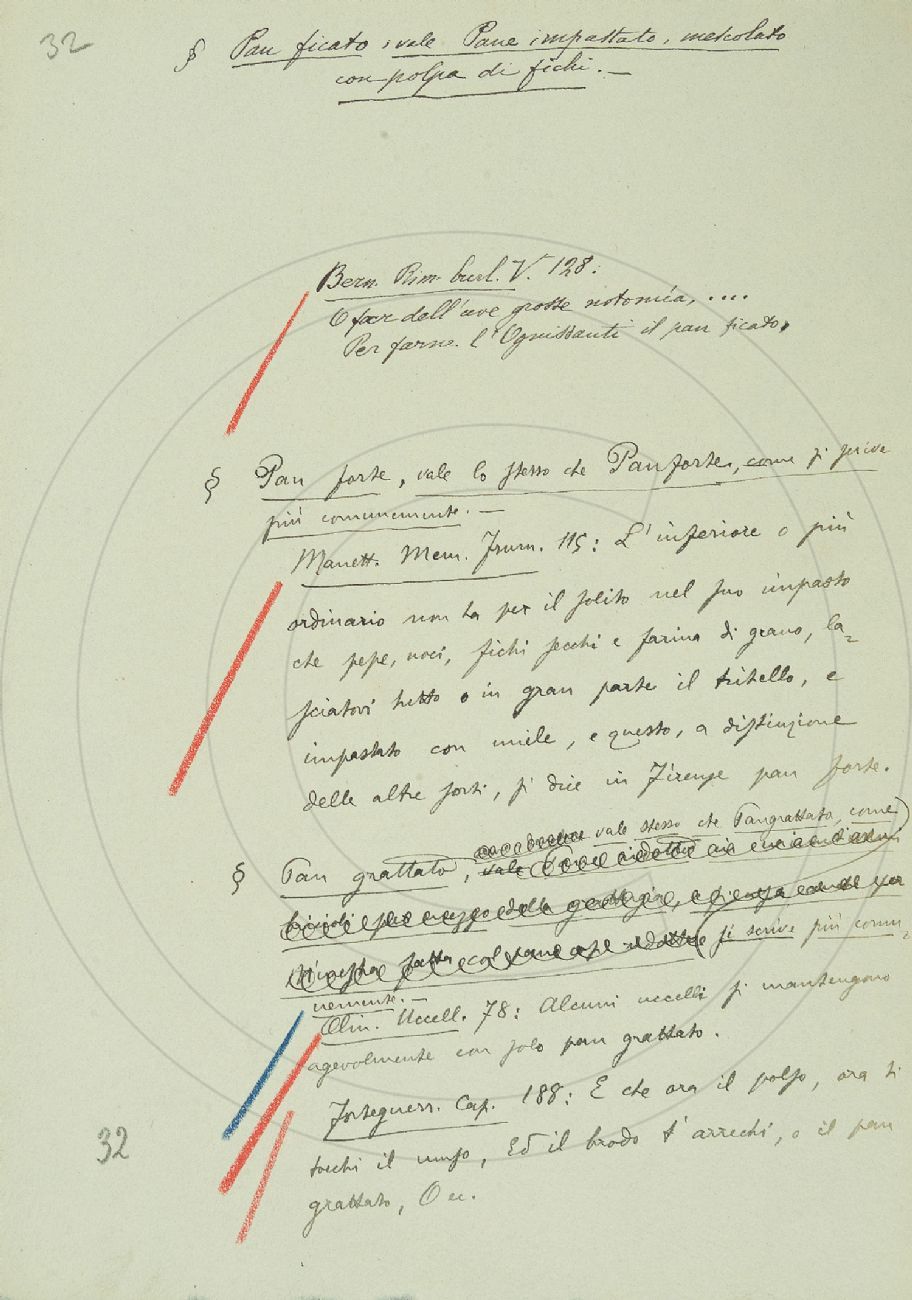 32
§ Pan ficato, vale Pane impastato, mescolato
con polpa di fichi. —
Bern. Rim. burl. V. 128:
O far dell'uve grosse notomia, ....
Per farne l'Ognissanti il pan ficato,
§ Pan forte, vale lo stesso che Panforte, come si scrive
più comunemente. —
Manett. Mem. Frum. 115: L'inferiore o più
ordinario non ha per il solito nel suo impasto
che pepe, noci, fichi secchi e farina di grano, la-
sciatovi tutto o in gran parte il tritello, e
impastato con miele, e questo, a distinzione
delle altre sorti, si dice in Firenze pan forte.
vale stesso che Pangrattato, come
§ Pan grattato, vale Pane ridotto in minutissimi
bricioli per mezzo della grattugia,
minestra fatta col pane così ridotto si scrive più comu-
nemente. —
Olin. Uccell. 78: Alcuni uccelli si mantengono
agevolmente con solo pan grattato.
Forteguerr. Cap. 188: E che ora il polso, ora ti
tocchi il muso, Ed il brodo t'arrechi, o il pan
grattato, O ec.
32